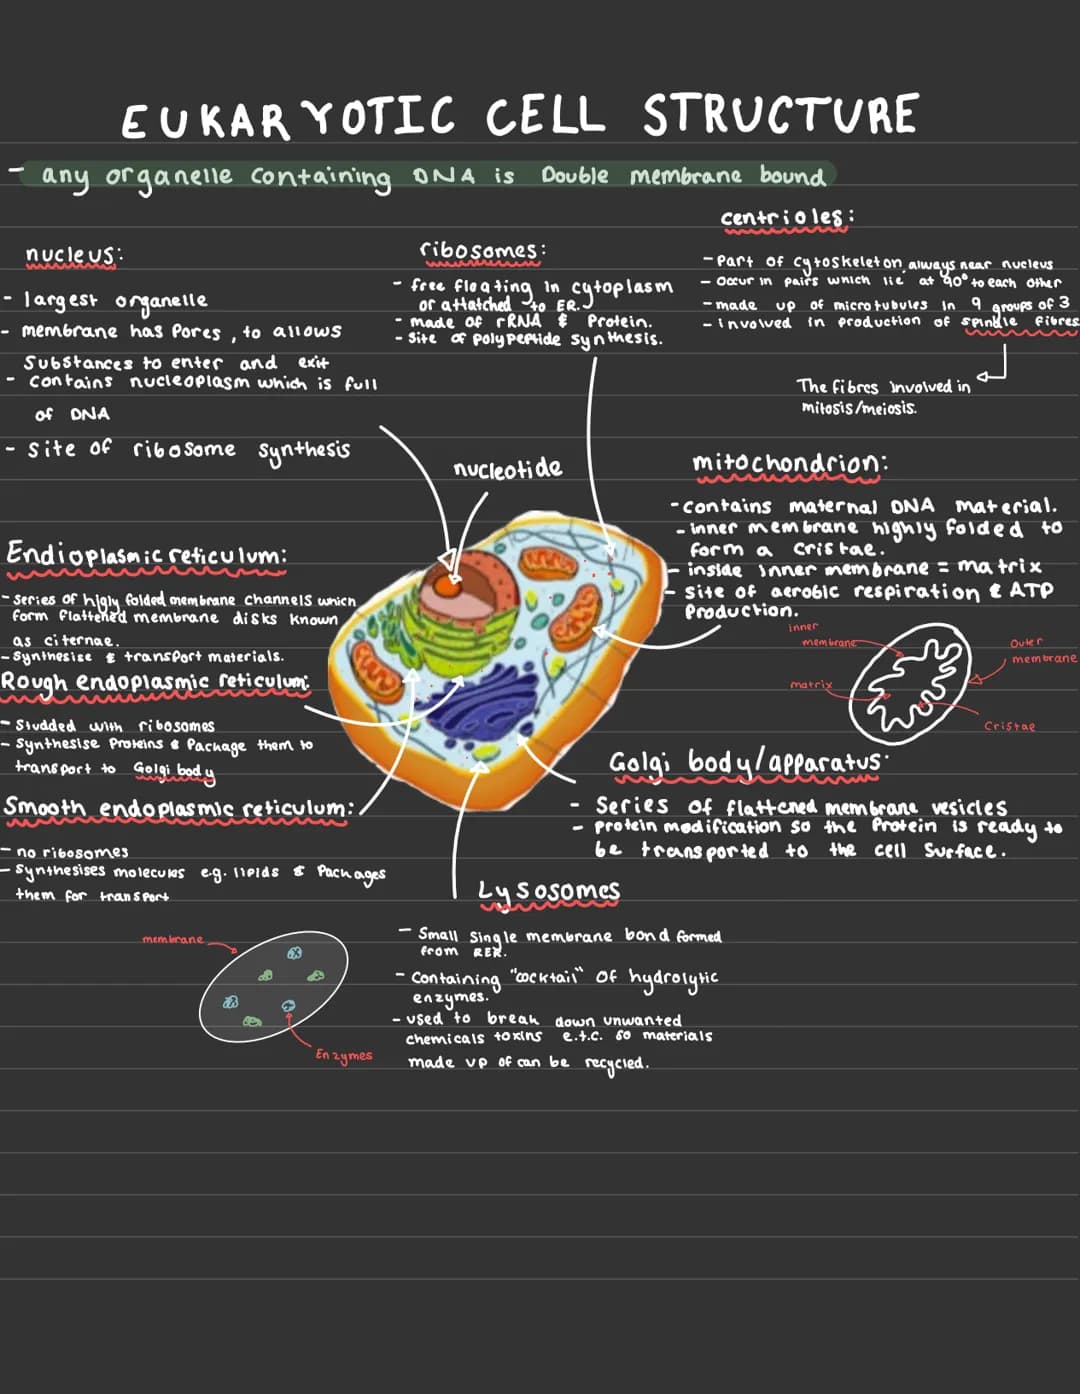 EUKARYOTIC CELL STRUCTURE
- any organelle containing DNA is Double membrane bound
nucleus:
- largest organelle
- membrane has Pores, to allows
Substances to enter and exit
- contains nucleoplasm which is full
of DNA
- site of ribosome synthesis
ribosomes:
- free floating in cytoplasm
or attatched to ER.
- made of rRNA & Protein.
- Site of polypeptide synthesis.
centrioles:
- Part of cytoskeleton, always near nucleus
- occur in pairs which lie at 90° to each other
- made up of microtubules in 9 groups of 3
- involved in production of spindle fibres
The fibres involved in
mitosis/meiosis.
nucleotide
mitochondrion:
- contains maternal DNA material.
- inner membrane highly folded to
form a cristae.
- inside inner membrane = matrix
- site of aerobic respiration & ATP
Production.
inner
membrane
outer
membrane
matrix
Cristae
Endioplasmic reticulum:
- Series of higly folded membrane channels which
form flattened membrane disks known
as citernae.
- Synthesise & transport materials.
Rough endoplasmic reticulum:
- Studded with ribosomes
- Synthesise Proteins & Package them to
transport to Golgi body
Smooth endoplasmic reticulum:
- no ribosomes
- Synthesises molecules e.g. lipids & Packages
them for transport
membrane
Enzymes
Golgi body/apparatus:
- Series of flattened membrane vesicles
- protein modification so the Protein is ready to
be transported to the cell Surface.
Lysosomes
- Small Single membrane bond formed
from RER.
- Containing "cocktail" of hydrolytic
enzymes.
- used to break down unwanted
chemicals toxins e.t.c. so materials
made up of can be recycled.